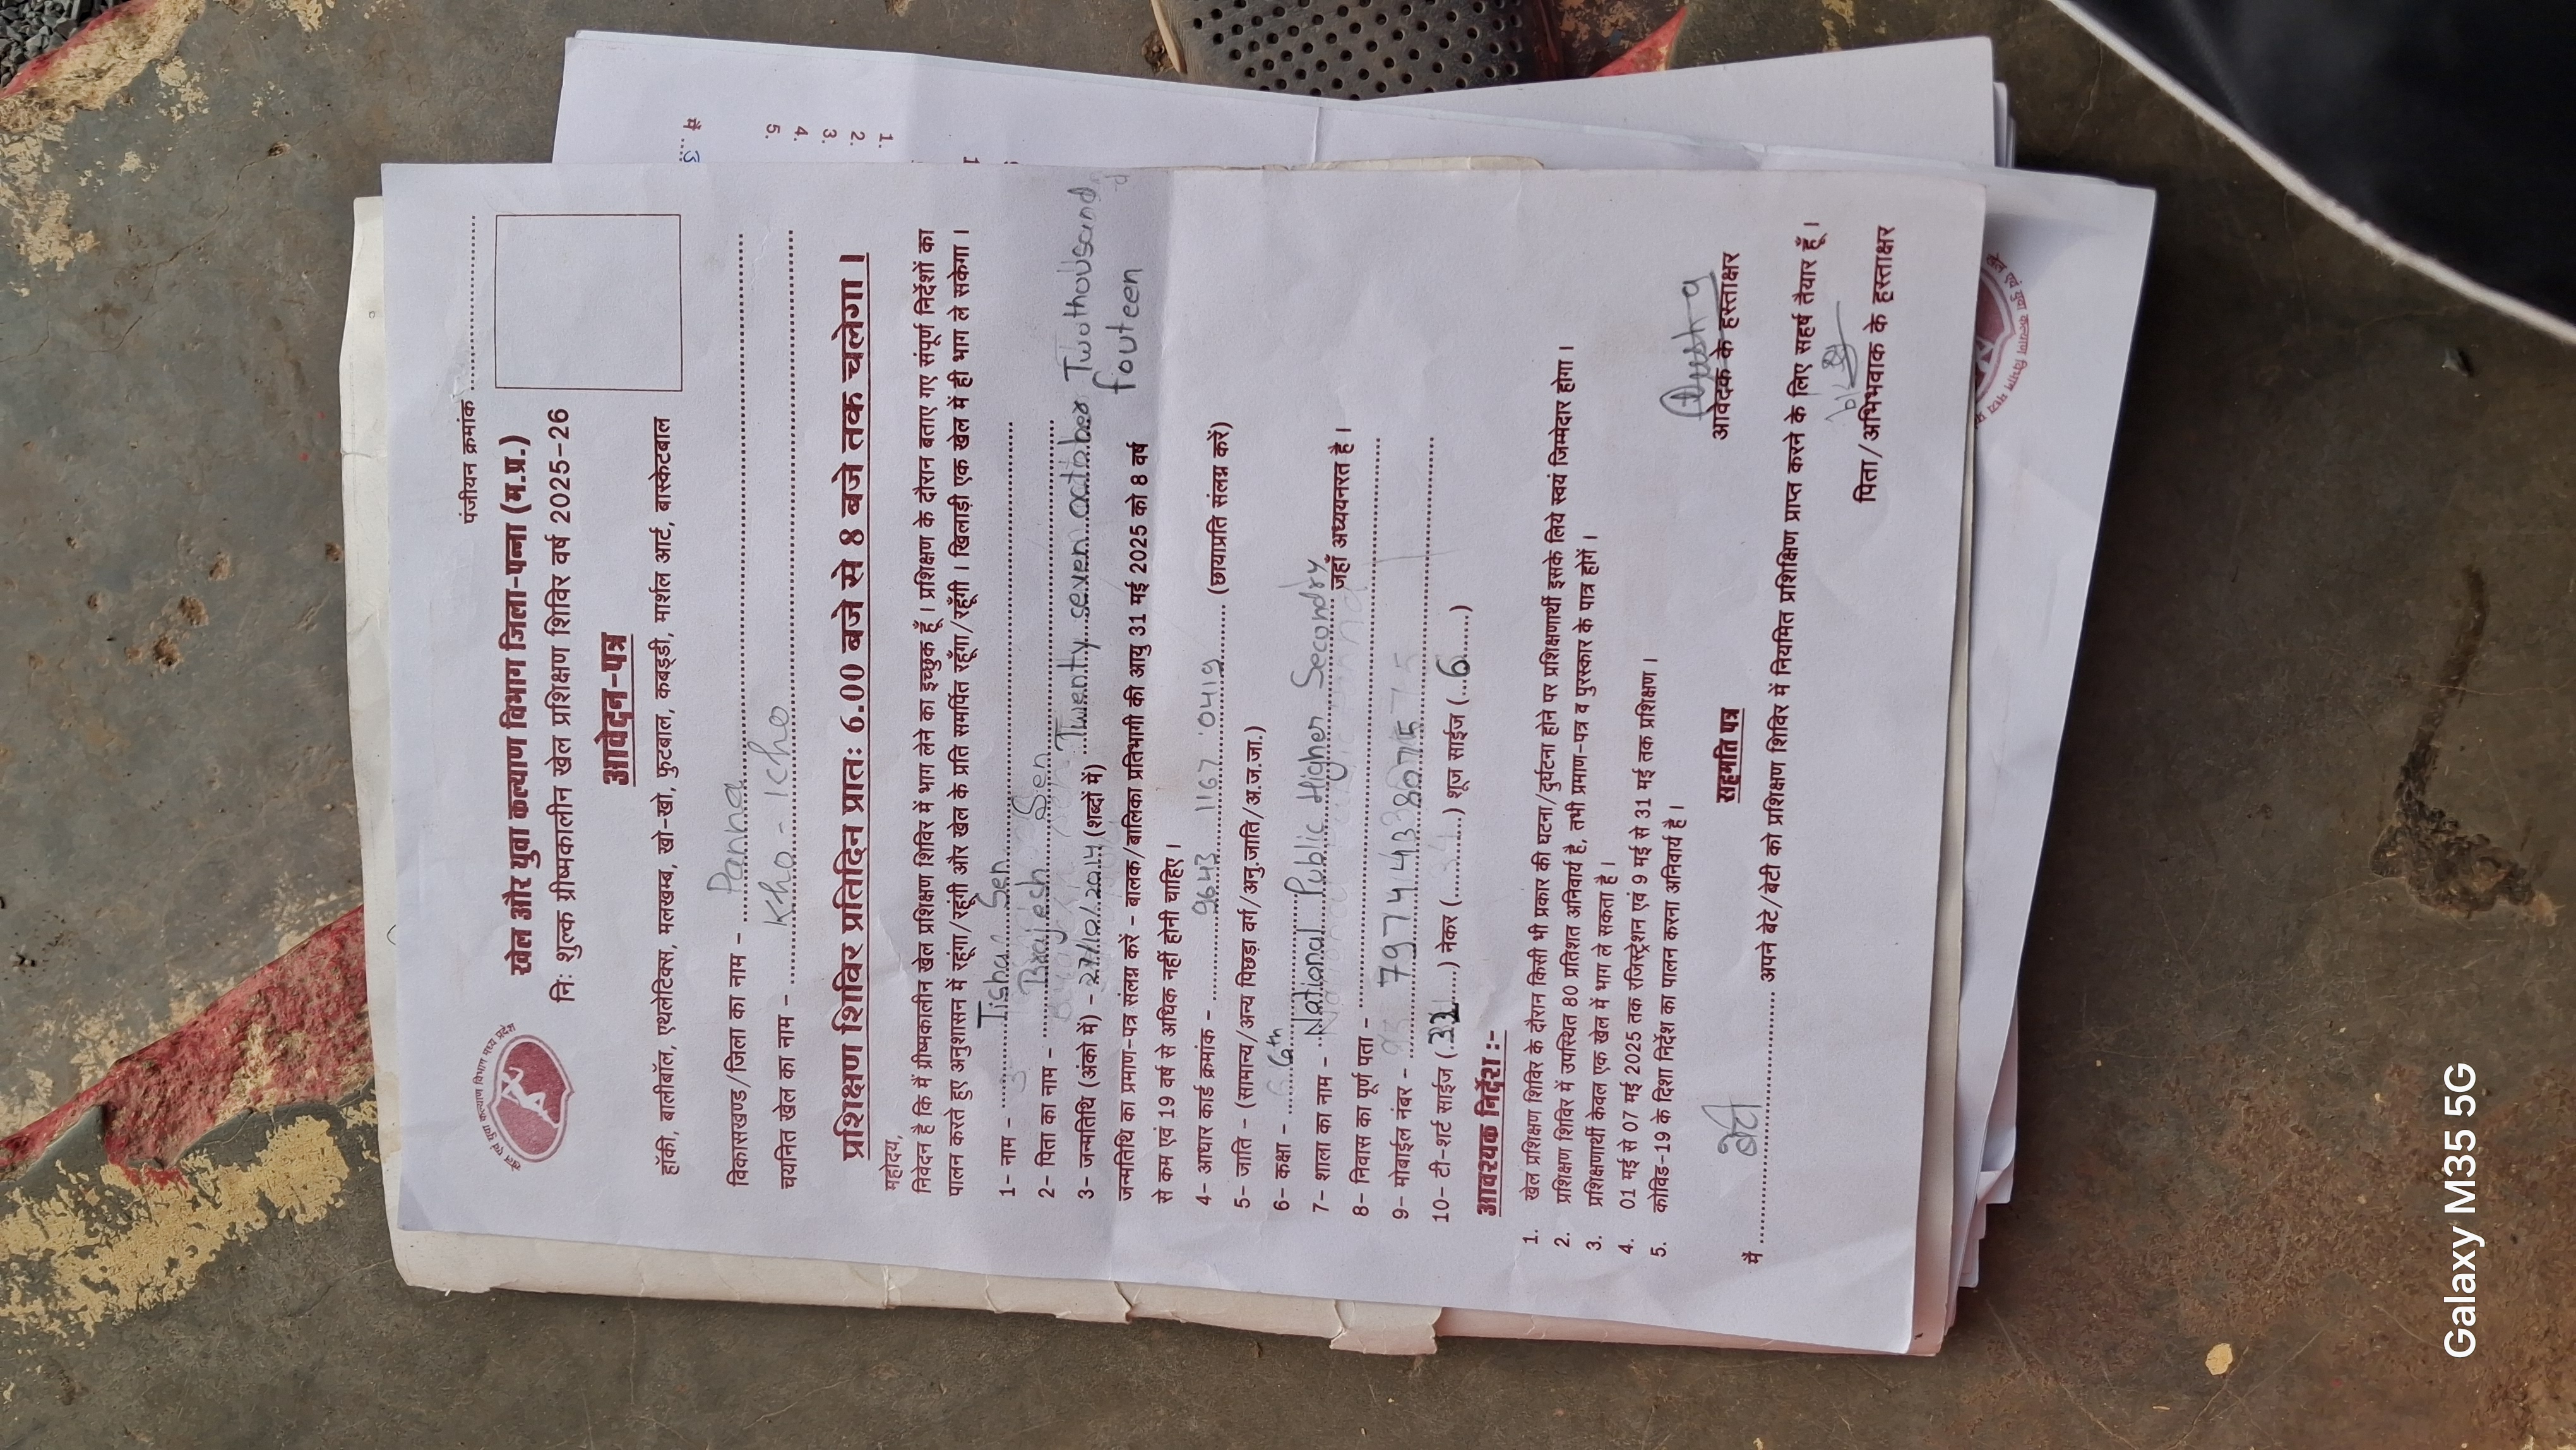 पंजीयन क्रमांक ....................
खेल एवं युवा कल्याण विभाग मध्य प्रदेश
खेल और युवा कल्याण विभाग जिला-पन्ना (म.प्र.)
निः शुल्क ग्रीष्मकालीन खेल प्रशिक्षण शिविर वर्ष 2025-26
आवेदन-पत्र
हॉकी, बालीबॉल, एथलेटिक्स, मलखम्ब, खो-खो, फुटबाल, कबड्डी, मार्शल आर्ट, बास्केटबाल
विकासखण्ड/जिला का नाम - Panna
चयनित खेल का नाम - Kho - Kho
प्रशिक्षण शिविर प्रतिदिन प्रातः 6.00 बजे से 8 बजे तक चलेगा।
महोदय,
निवेदन है कि मैं ग्रीष्मकालीन खेल प्रशिक्षण शिविर में भाग लेने का इच्छुक हूँ। प्रशिक्षण के दौरान बताए गए संपूर्ण निर्देशों का
पालन करते हुए अनुशासन में रहूंगा/रहूंगी और खेल के प्रति समर्पित रहूँगा/रहूँगी। खिलाड़ी एक खेल में ही भाग ले सकेगा।
1- नाम - Tisha Sen
2- पिता का नाम - Brajesh Sen
3- जन्मतिथि (अंको में) - 27/10/2014 (शब्दों में) Twenty seven october Twothousand
fouteen
जन्मतिथि का प्रमाण-पत्र संलग्न करें - बालक/बालिका प्रतिभागी की आयु 31 मई 2025 को 8 वर्ष
से कम एवं 19 वर्ष से अधिक नहीं होनी चाहिए।
4- आधार कार्ड क्रमांक - 9643 1167 0419 (छायाप्रति संलग्न करें)
5- जाति - (सामान्य/अन्य पिछड़ा वर्ग/अनु.जाति/अ.ज.जा.)
6- कक्षा - 6th
7- शाला का नाम - National Public Higher Secondry जहाँ अध्ययनरत है।
8- निवास का पूर्ण पता -
9- मोबाईल नंबर -
10- टी-शर्ट साईज (32) नेकर (..........) शूज साईज (6)
आवश्यक निर्देश :-
1. खेल प्रशिक्षण शिविर के दौरान किसी भी प्रकार की घटना/दुर्घटना होने पर प्रशिक्षणार्थी इसके लिये स्वयं जिम्मेदार होगा।
2. प्रशिक्षण शिविर में उपस्थित 80 प्रतिशत अनिवार्य है, तभी प्रमाण-पत्र व पुरस्कार के पात्र होगें।
3. प्रशिक्षणार्थी केवल एक खेल में भाग ले सकता है।
4. 01 मई से 07 मई 2025 तक रजिस्ट्रेशन एवं 9 मई से 31 मई तक प्रशिक्षण।
5. कोविड-19 के दिशा निर्देश का पालन करना अनिवार्य है।
आवेदक के हस्ताक्षर
सहमति पत्र
मैं बेटी अपने बेटे/बेटी को प्रशिक्षण शिविर में नियमित प्रशिक्षण प्राप्त करने के लिए सहर्ष तैयार हूँ।
पिता/अभिभावक के हस्ताक्षर
खेल एवं युवा कल्याण विभाग मध्य प्र
Galaxy M35 5G